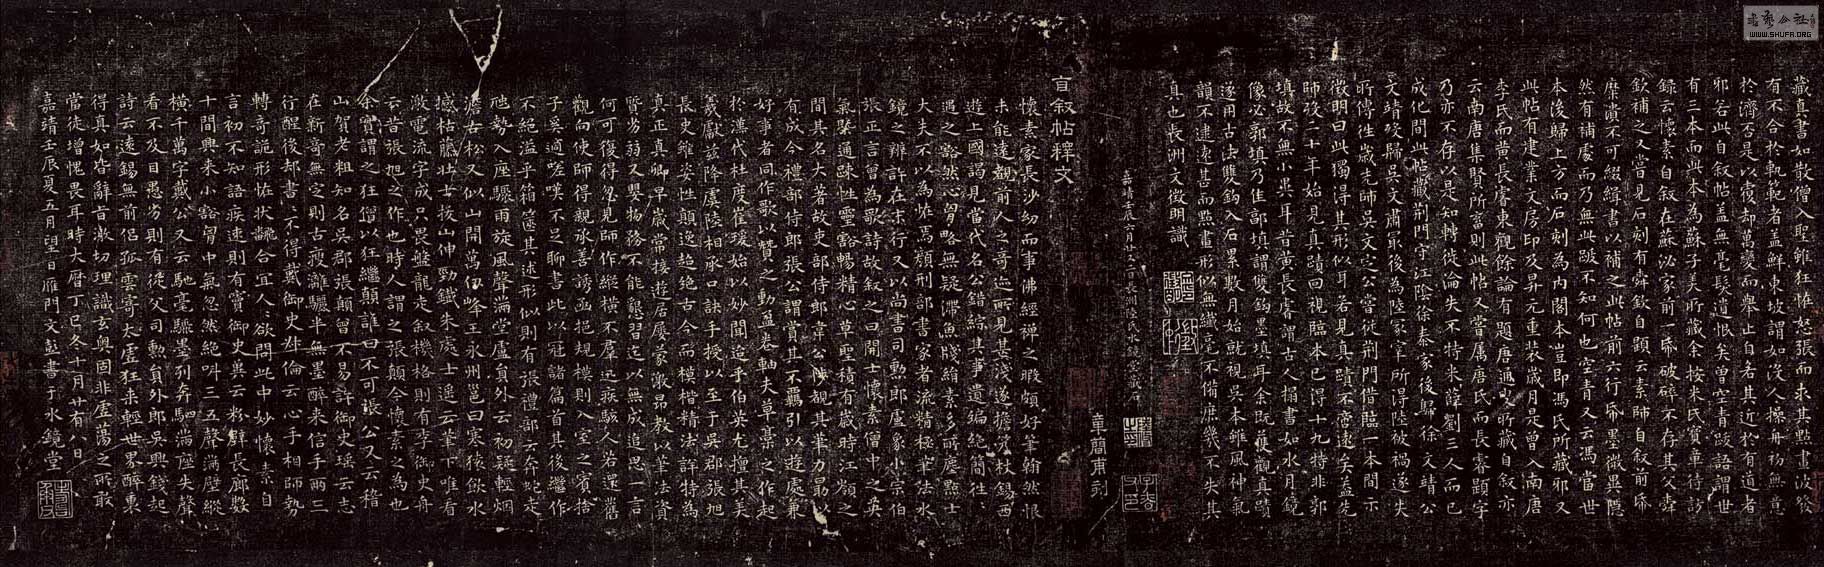 藏真書如散僧入聖雖狂怪怒張而求其點畫波發
有不合於軌範者蓋鮮東坡謂如沒人操舟初無意
於濟否是以覆却萬變而舉止自若其近於有道者
邪若此自叙帖蓋無毫髮遺恨矣曾空青跋語謂世
有三本而此本為蘇子美所藏余按米氏寶章待訪
錄云懷素自叙在蘇泌家前一帋破碎不存其父舜
欽補之又嘗見石刻有舜欽自題云素師自叙前帋
糜潰不可綴緝書以補之此帖前六行帋墨微異隱
然有補處而乃無此跋不知何也空青又云馮當世
本後歸上方而石刻為內閣本豈即馮氏所藏邪又
此帖有建業文房印及昇元重裝歲月是曾入南唐
李氏而黃長睿東觀餘論有題唐通叟所藏自叙亦
云南唐集賢所畜則此帖又嘗屬唐氏而長睿題字
乃亦不存以是知轉徙淪失不特米薛劉三人而已
成化間此帖藏荊門守江陰徐泰家後歸徐文靖公
文靖歿歸吳文肅最後為陸冢宰所得陸被禍遂失
所傳往歲先師吳文定公嘗從荊門借臨一本間示
徵明曰此獨得其形似耳若見真蹟不啻遠矣蓋先
師歿二十年始見真蹟回視臨本已得十九特非郭
填故不無小異耳昔黃長睿謂古人搨書如水月鏡
像必郭填乃佳郭填謂雙鈎墨填耳余既獲觀真蹟
遂用古法雙鈎入石累數月始就視吳本雖風神氣
韻不逮遠甚而點畫形似無纖毫不備庶幾不失其
真也長洲文徵明識
嘉靖壬辰六月廿又二日長洲陸氏水鏡堂藏石
章簡甫刻
自叙帖釋文
懷素家長沙幼而事佛經禪之暇頗好筆翰然恨
未能遠覩前人之奇迹所見甚淺遂擔笈杖錫西
遊上國謁見當代名公錯綜其事遺編絕簡往〻
遇之豁然心胷略無疑滯魚牋絹素多所塵點士
大夫不以為怪焉顏刑部書家者流精極筆法水
鏡之辨許在末行又以尚書司勳郎盧象小宗伯
張正言曾為歌詩故叙之曰開士懷素僧中之英
氣槩通踈性靈豁暢精心草聖積有歲時江嶺之
間其名大著故吏部侍郎韋公陟覩其筆力勗以
有成今禮部侍郎張公謂賞其不羈引以遊處兼
好事者同作歌以贊之動盈卷軸夫草藁之作起
於漢代杜度崔瑗始以妙聞迨乎伯英尤擅其美
羲獻茲降虞陸相承口訣手授以至于吳郡張旭
長史雖姿性顛逸超絕古今而模楷精法詳特為
真正真卿早歲常接遊居屢蒙激昂教以筆法資
質劣弱又嬰物務不能懇習迄以無成追思一言
何可復得忽見師作縱橫不羣迅疾駭人若還舊
觀向使師得親承善誘函挹規模則入室之賓捨
子奚適嗟嘆不足聊書此以冠諸篇首其後繼作
不絕溢乎箱篋其述形似則有張禮部云奔蛇走
虺勢入座驟雨旋風聲滿堂盧員外云初疑輕烟
澹古松又似山開萬仞峰王永州邕曰寒猿飲水
撼枯藤壯士拔山伸勁鐵朱處士遥云筆下唯看
激電流字成只畏盤龍走叙機格則有李御史舟
云昔張旭之作也時人謂之張顛今懷素之為也
余實謂之狂僧以狂繼顛誰曰不可張公又云稽
山賀老粗知名吳郡張顛曾不易許御史瑶云志
在新奇無定則古瘦灕驪半無墨醉來信手兩三
行醒後却書書不得戴御史叔倫云心手相師勢
轉奇詭形怪狀翻合宜人人欲問此中妙懷素自
言初不知語疾速則有竇御史冀云粉壁長廊數
十間興來小豁胷中氣忽然絕叫三五聲滿壁縱
橫千萬字戴公又云馳毫驟墨列奔駟滿座失聲
看不及目愚劣則有從父司勳員外郎吳興錢起
詩云遠錫無前侶孤雲寄太虛狂來輕世界醉裏
得真如皆辭旨激切理識玄奧固非虛蕩之所敢
當徒增愧畏耳時大曆丁巳冬十月廿有八日
嘉靖壬辰夏五月望日雁門文彭書于水鏡堂
WWW.SHUFA.ORG